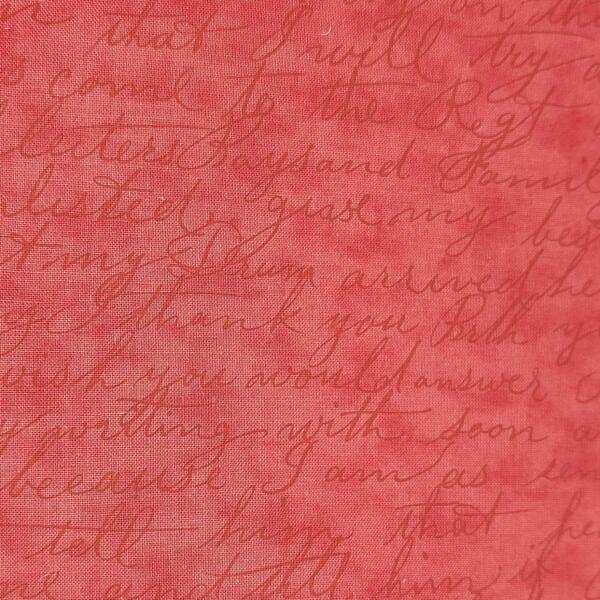 that I will try
come to the Regt
letters Says and Famil
enlisted. give my bes
my Drum arrived he
I thank you Both y
wish you would answer
writing with soon a
because I am as
tell him that he
and tell him if